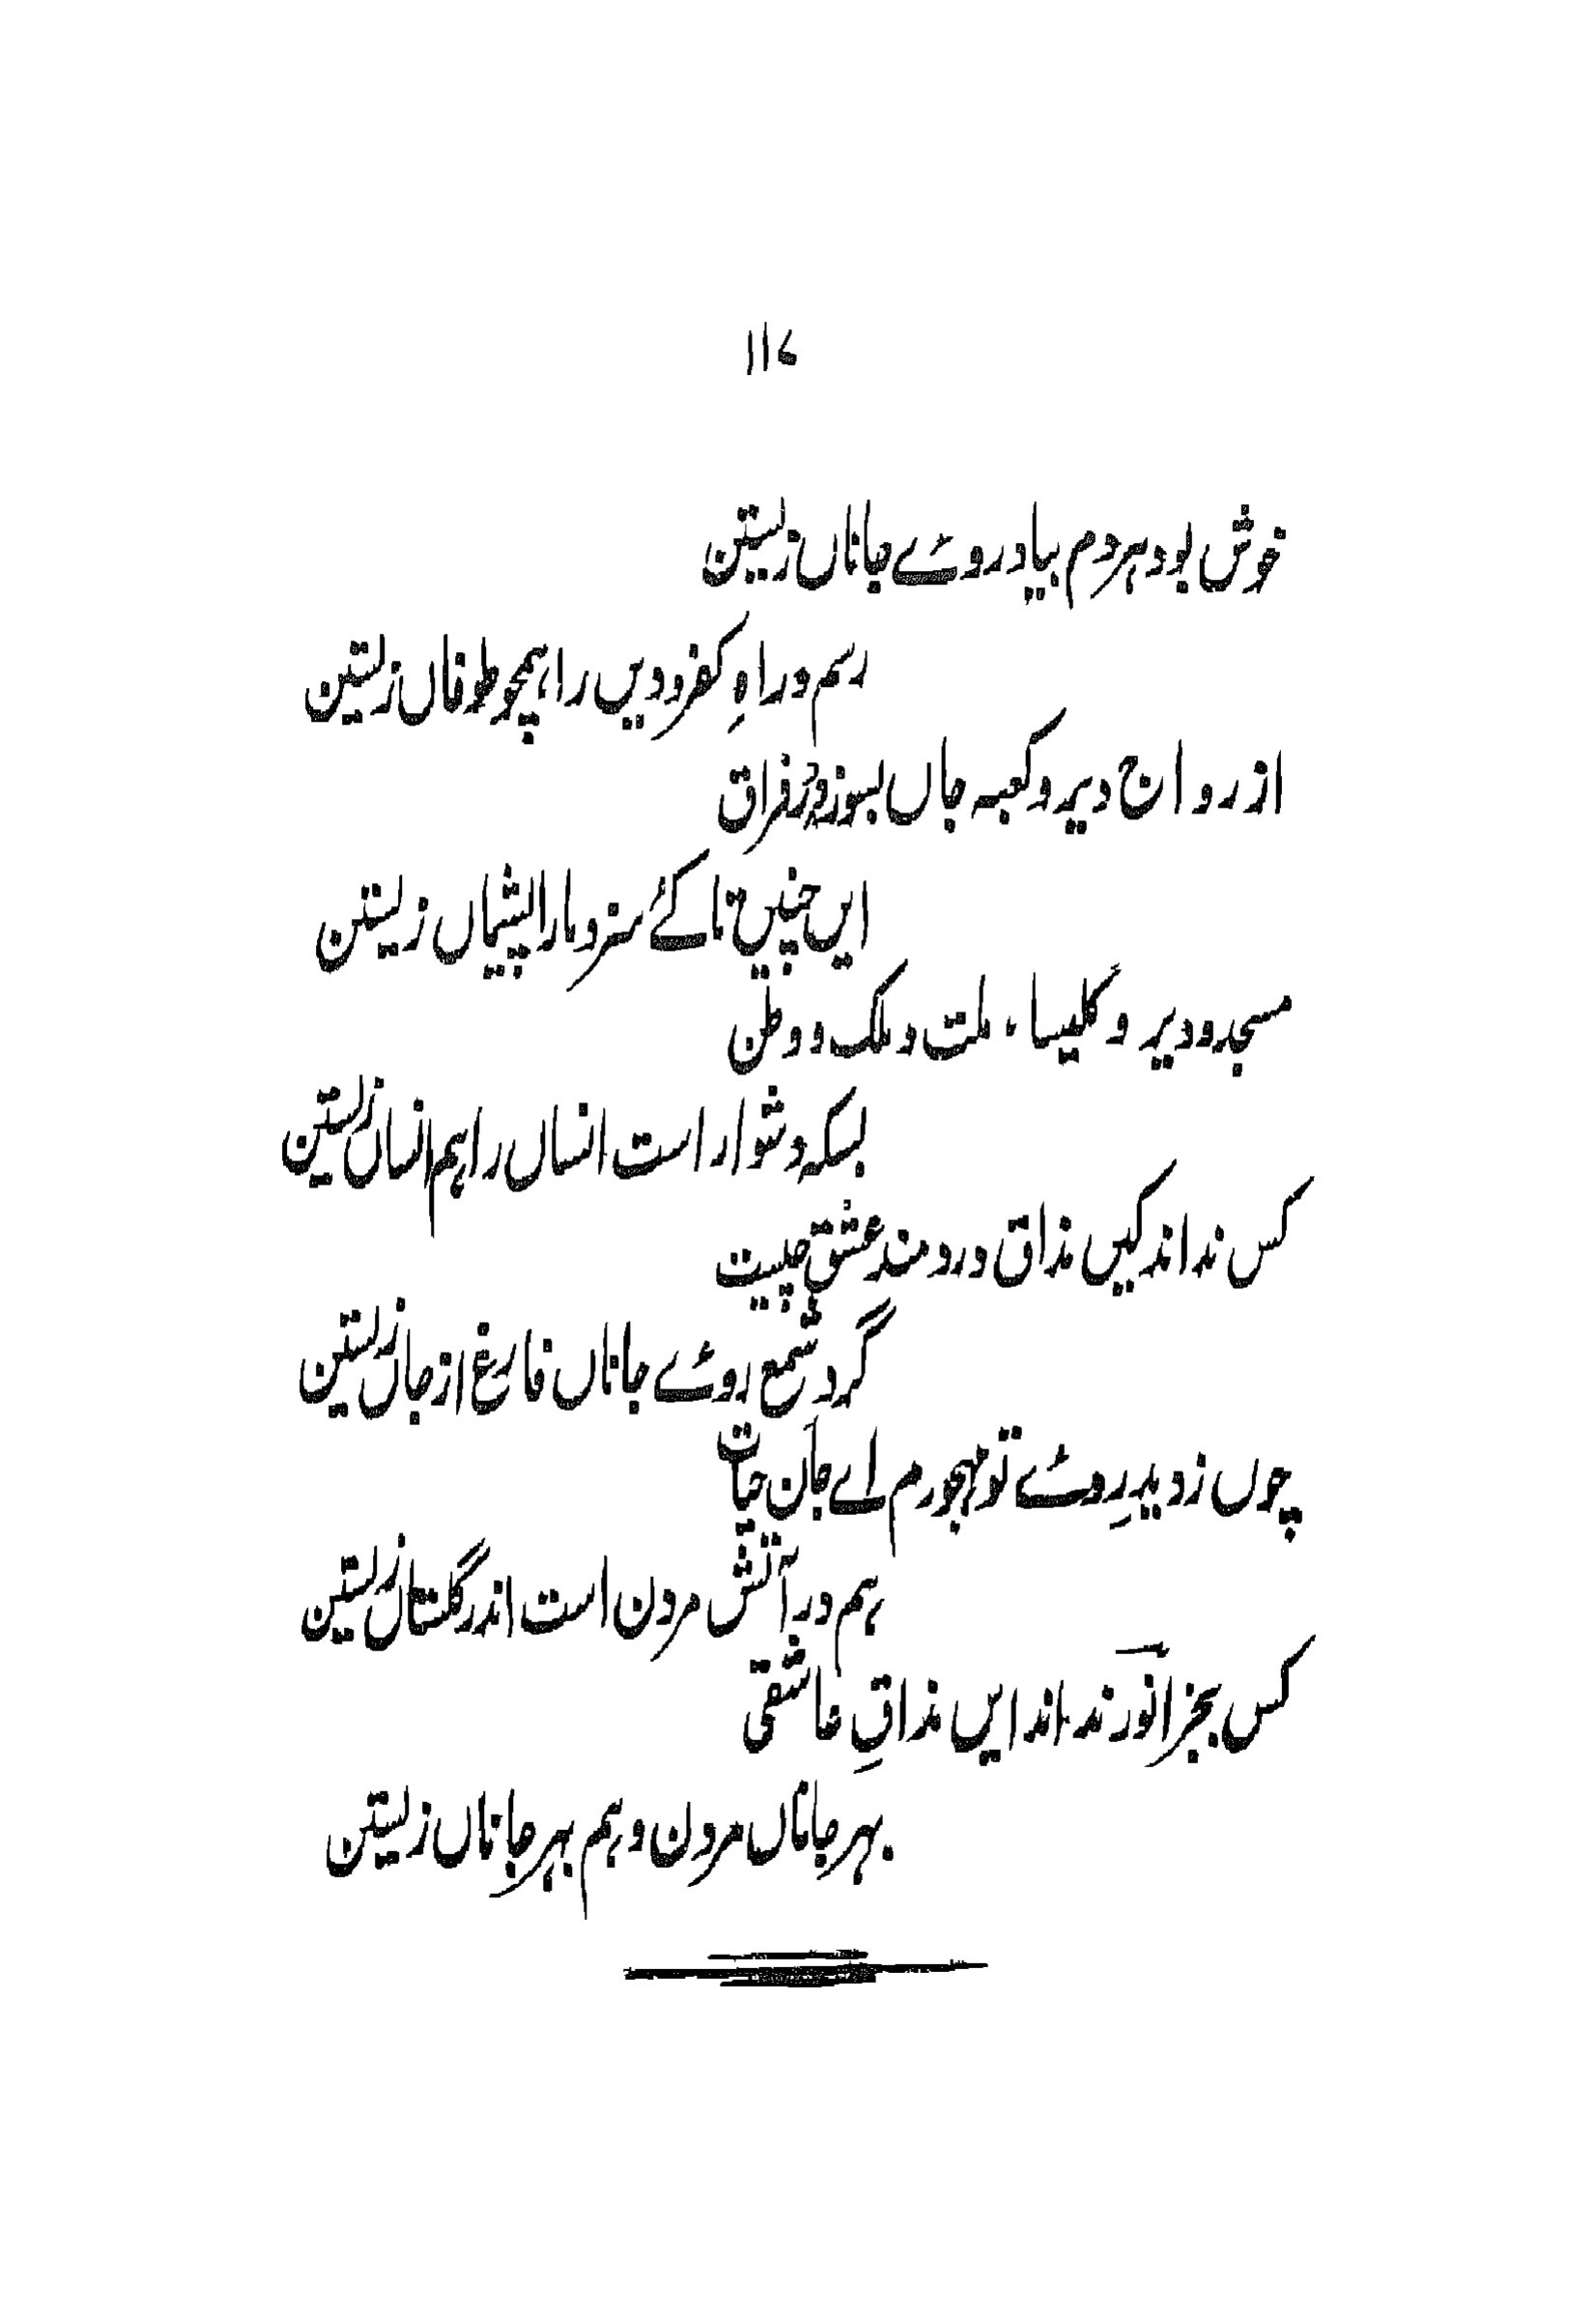 ۱۱۷
خوش بود ہر دم بیاد روئے جاناں زیستن
رسم و راہِ کفر و دیں را ہمچو طوفاں زیستن
از رواج دیر و کعبہ جاں بسوزد در فراق
ایں چنیں تا کئے سزد ما را پشیماں زیستن
مسجد و دیر و کلیسا، ملت و ملک و وطن
بسکہ دشوار است انساں را ہم انساں زیستن
کس نداند کیں مذاق درد مند عشق چیست
گرد شمع روئے جاناں فارغ از جاں زیستن
چوں ز دیدِ روئے تو مہجورم اے جان حیات
ہم در آتش مردن است اندر گلستاں زیستن
کس بجز انور نداند ایں مذاقِ عاشقی
بہر جاناں مردن و ہم بہر جاناں زیستن